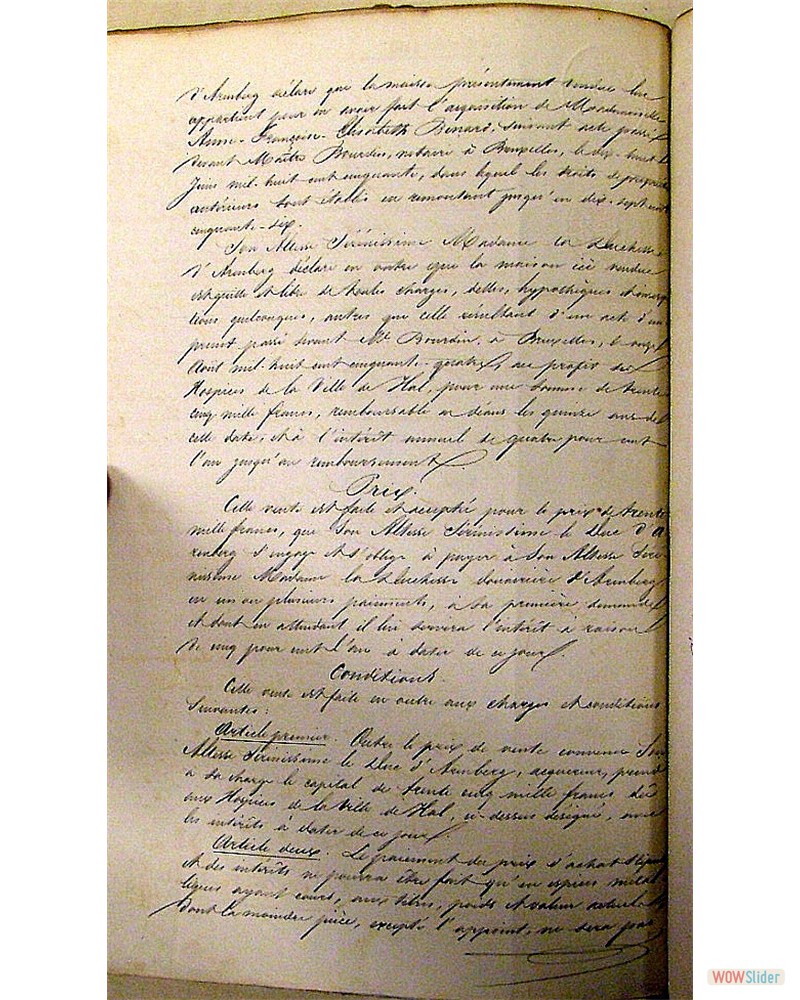 d'Arenberg déclare que la maison présentement vendue lui
appartient pour en avoir fait l'acquisition de Mademoiselle
Anne-Françoise-Elisabeth Benard, suivant acte passé
devant Maître Bourdin, notaire à Bruxelles, le dix-huit
Juin mil-huit cent cinquante, dans lequel les droits de propriété
antérieurs sont établis en remontant jusqu'en dix-sept cent
cinquante-six.
Son Altesse Sérénissime Madame la Duchesse
d'Arenberg déclare en outre que la maison ici vendue
est quitte et libre de toutes charges, dettes, hypothèques et inscrip
tions quelconques, autres que celle résultant d'un acte d'em
prunt passé devant Me Bourdin, à Bruxelles, le onze
Août mil-huit cent cinquante-quatre, au profit des
Hospices de la Ville de Hal, pour une somme de trente
cinq mille francs, remboursable en déans les quinze ans de
cette date, et à l'intérêt annuel de quatre pour cent
l'an jusqu'au remboursement.
Prix.
Cette vente est faite et acceptée pour le prix de trente
mille francs, que Son Altesse Sérénissime le Duc d'A
renberg s'engage et s'oblige à payer à Son Altesse Séré
nissime Madame la Duchesse douairière d'Arenberg
en un ou plusieurs paiements, à sa première demande
et dont en attendant il lui servira l'intérêt à raison
de cinq pour cent l'an à dater de ce jour.
Conditions.
Cette vente est faite en outre aux charges et conditions
suivantes:
Article premier. Outre le prix de vente convenu Son
Altesse Sérénissime le Duc d'Arenberg, acquéreur, prend
à sa charge le capital de trente cinq mille francs dû
aux Hospices de la Ville de Hal, ci-dessus désigné, avec
les intérêts à dater de ce jour.
Article deux. Le paiement du prix d'achat
et des intérêts ne pourra être fait qu'en espèces métal
liques ayant cours, aux titres, poids et valeur actuels
dont la moindre pièce, excepté l'appoint, ne sera pas
WOWSlider